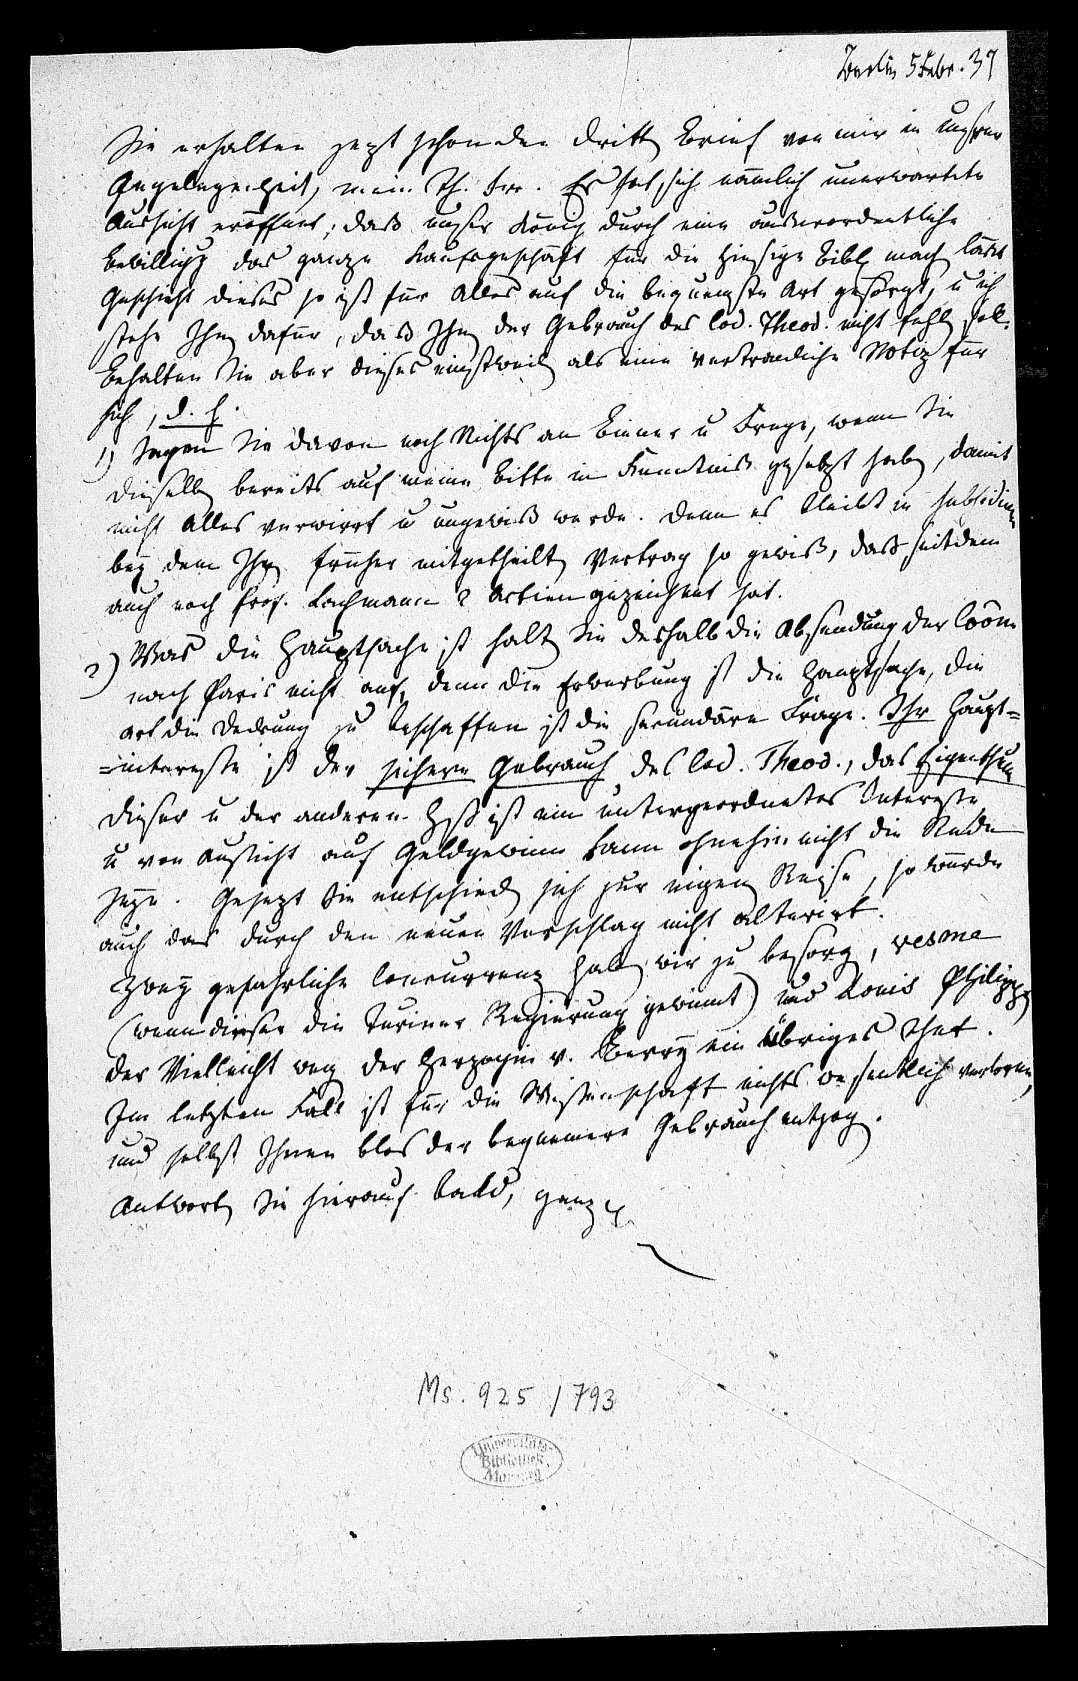 Berlin 5 Febr. 37
Sie erhalten jezt schon den dritt Brief von mir in unsrer
Angelegenheit, mein Th. Fre. Es hat sich nämlich unerwartete
Aussicht eröffnet, daß unser König durch eine außerordentliche
Bewilligg das ganze Kaufsgeschäft für die hiesige Bibl mach läßt
Geschieht dieses so ist für Alles auf die bequemste Art gesorgt, u ich
stehe Ihn dafür, daß Ihn der Gebrauch des Cod. Theod. nicht fehl soll.
Behalten Sie aber dieses einstweil als eine vertrauliche Notiz für
sich, d. h.
1) Sagen Sie davon noch Nichts an Biener u Krug, wenn Sie
dieselb bereits auf meine Bitte in Kenntniß gesetzt hab, damit
nicht Alles verwirrt u ungewiß werde. Denn es bleibt in subsidium
bey dem Ihn früher mitgetheilt Vertrag so gewiß, daß seitdem
auch noch Prof. Lachmann 2 Actien gezeichnet hat.
2) Was die Hauptsache ist halt Sie deshalb die Absendung der
nach Paris nicht auf, denn die Erwerbung ist die Hauptsache, die
Art die Deckung zu beschaffen ist die secundäre Frage. Ihr Haupt=
=interesse ist der sichere Gebrauch des Cod. Theod., das Eigenthum
dieser u der anderen Hss ist ein untergeordnetes Interesse,
u von Aussicht auf Geldgewinn kann ohnehin nicht die Rede
seyn. Gesezt Sie entschied sich zur eigen Reise, so würde
auch das durch den neuen Vorschlag nicht alterirt.
Zwey gefährliche Concurrenz hab wir zu besorg, Vesme
(wenn dieser die Turiner Regierung gewinnt) und Louis Philipp,
der Vielleicht weg der Herzogin v. Berry ein Übriges thut.
Im letzten Fall ist für die Wissenschaft nichts wesentlich verloren,
und selbst Ihnen blos der bequemere Gebrauch entzog.
Antwort Sie hierauf bald, ganz
Ms. 925/793
Universitäts-
Bibliothek
Marburg